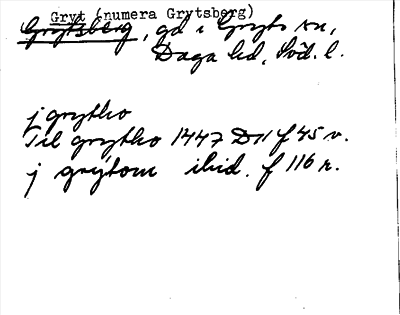 Gryt (numera Grytsberg)
Grytsberg, gd i Gryts sn,
Daga hd, Söd. l.
j grytho
Til grytho 1447 D11 f 45 v.
j grytom ibid. f 116 r.